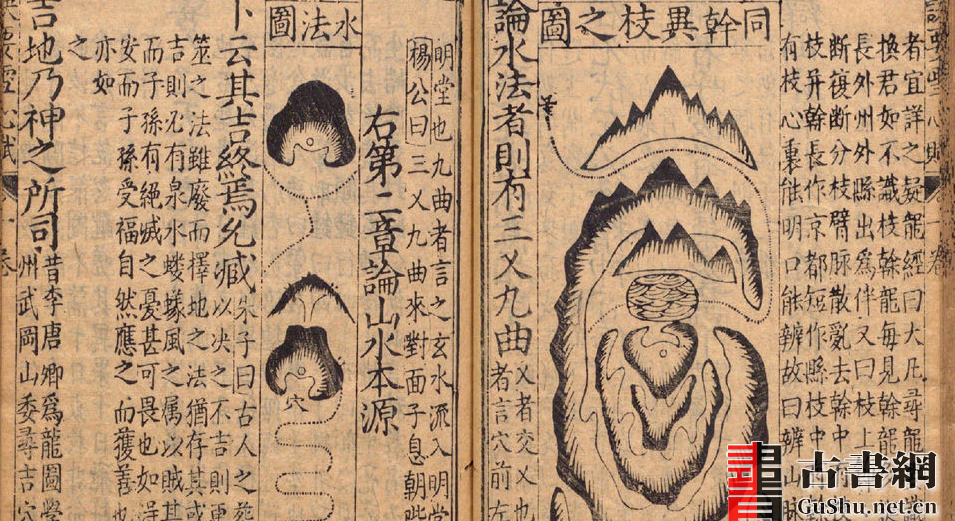 者宜詳之疑龍經曰大凡尋龍識
換君如不識枝幹龍每見幹龍
長外州外縣出為伴又曰枝上
斷復斷分枝劈脉散亂去幹中
枝并幹長作京都短作縣枝中
有枝心裏能明口能辨故曰辨山
同幹異枝之圖
葉
論水法者則有三叉九曲
叉者交叉也
者言穴前左
明堂也九曲者言之玄水流入明堂
楊公曰三叉九曲來對面子息朝
右第二章論山水本源
水法圖
穴
卜云其吉終焉允臧
朱子曰古人之葬
以決之不吉則更
筮之法雖廢而擇地之法猶存其或
吉則凡有泉水螻蟻風之属以賊其
而子孫有絕滅之憂甚可畏也如得
安而子孫受福自然應之而獲善也
亦如之
吉地乃神之所司
昔李唐卿為龍圖學
州武岡山委尋吉穴
古書網
GuShu.net.cn